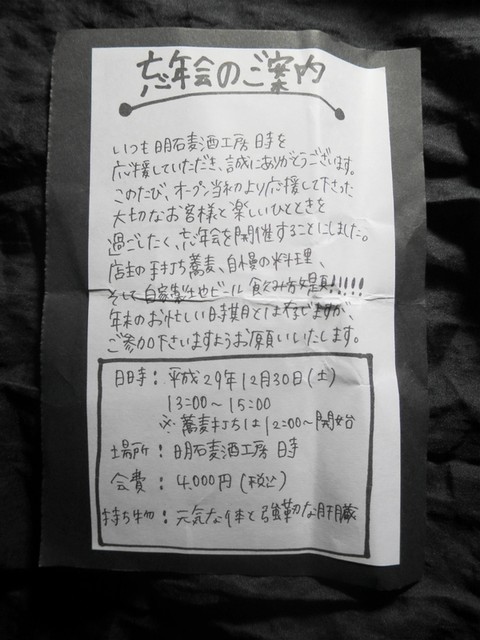 忘年会のご案内
いつも明石麦酒工房 時を
応援していただき、誠にありがとうございます。
このたび、オープン当初より応援して下さった
大切なお客様と楽しいひとときを
過ごしたく、忘年会を開催することにしました。
店主の手打ち蕎麦、自慢の料理、
そして自家製生地ビール飲み放題!!!!!
年末のお忙しい時期とは存じますが、
ご参加下さいますようお願いいたします。
日時：平成29年12月30日(土)
13:00～15:00
※蕎麦打ちは12:00～開始
場所：明石麦酒工房 時
会費：4,000円(税込)
持ち物：元気な体と強靭な肝臓